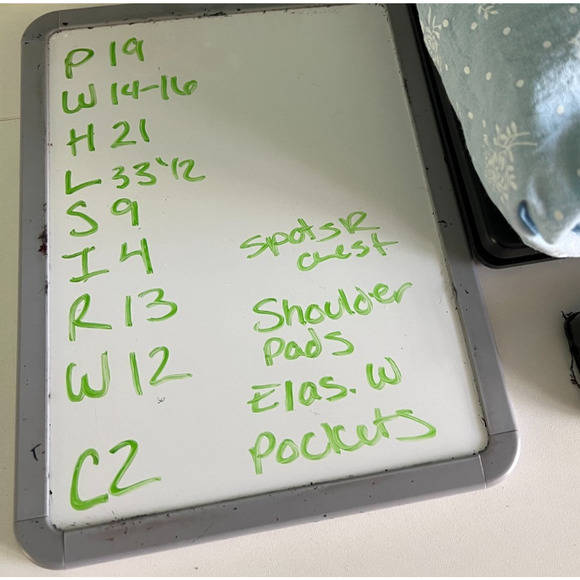 P 19
W 14-16
H 21
L 33 1/2
S 9
I 4
R 13
W 12
C2
Spots R
chest
Shoulder
Pads
Elas. W
Pockets